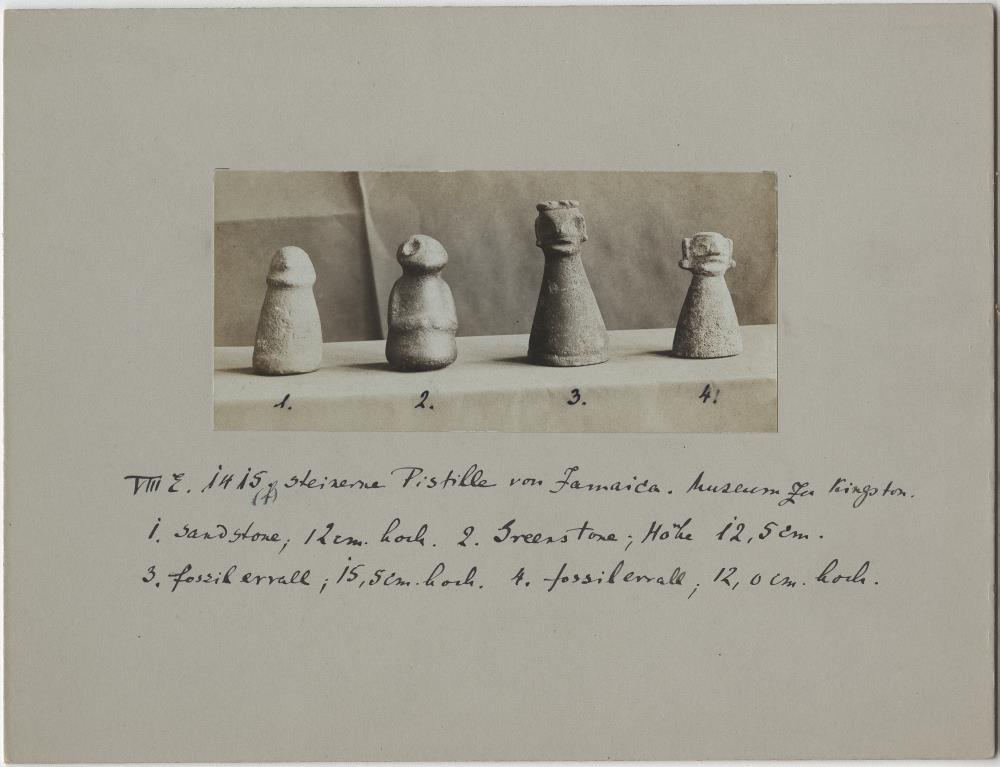 1.
2.
3.
4!
VIII E. 1415. steinerne Pistille von Jamaica. Museum zu Kingston.
(4)
1. Sandstone; 12 cm. hoch. 2. Greenstone; Höhe 12,5 cm.
3. fossil corrall; 15,5 cm. hoch. 4. fossil corrall; 12,0 cm. hoch.